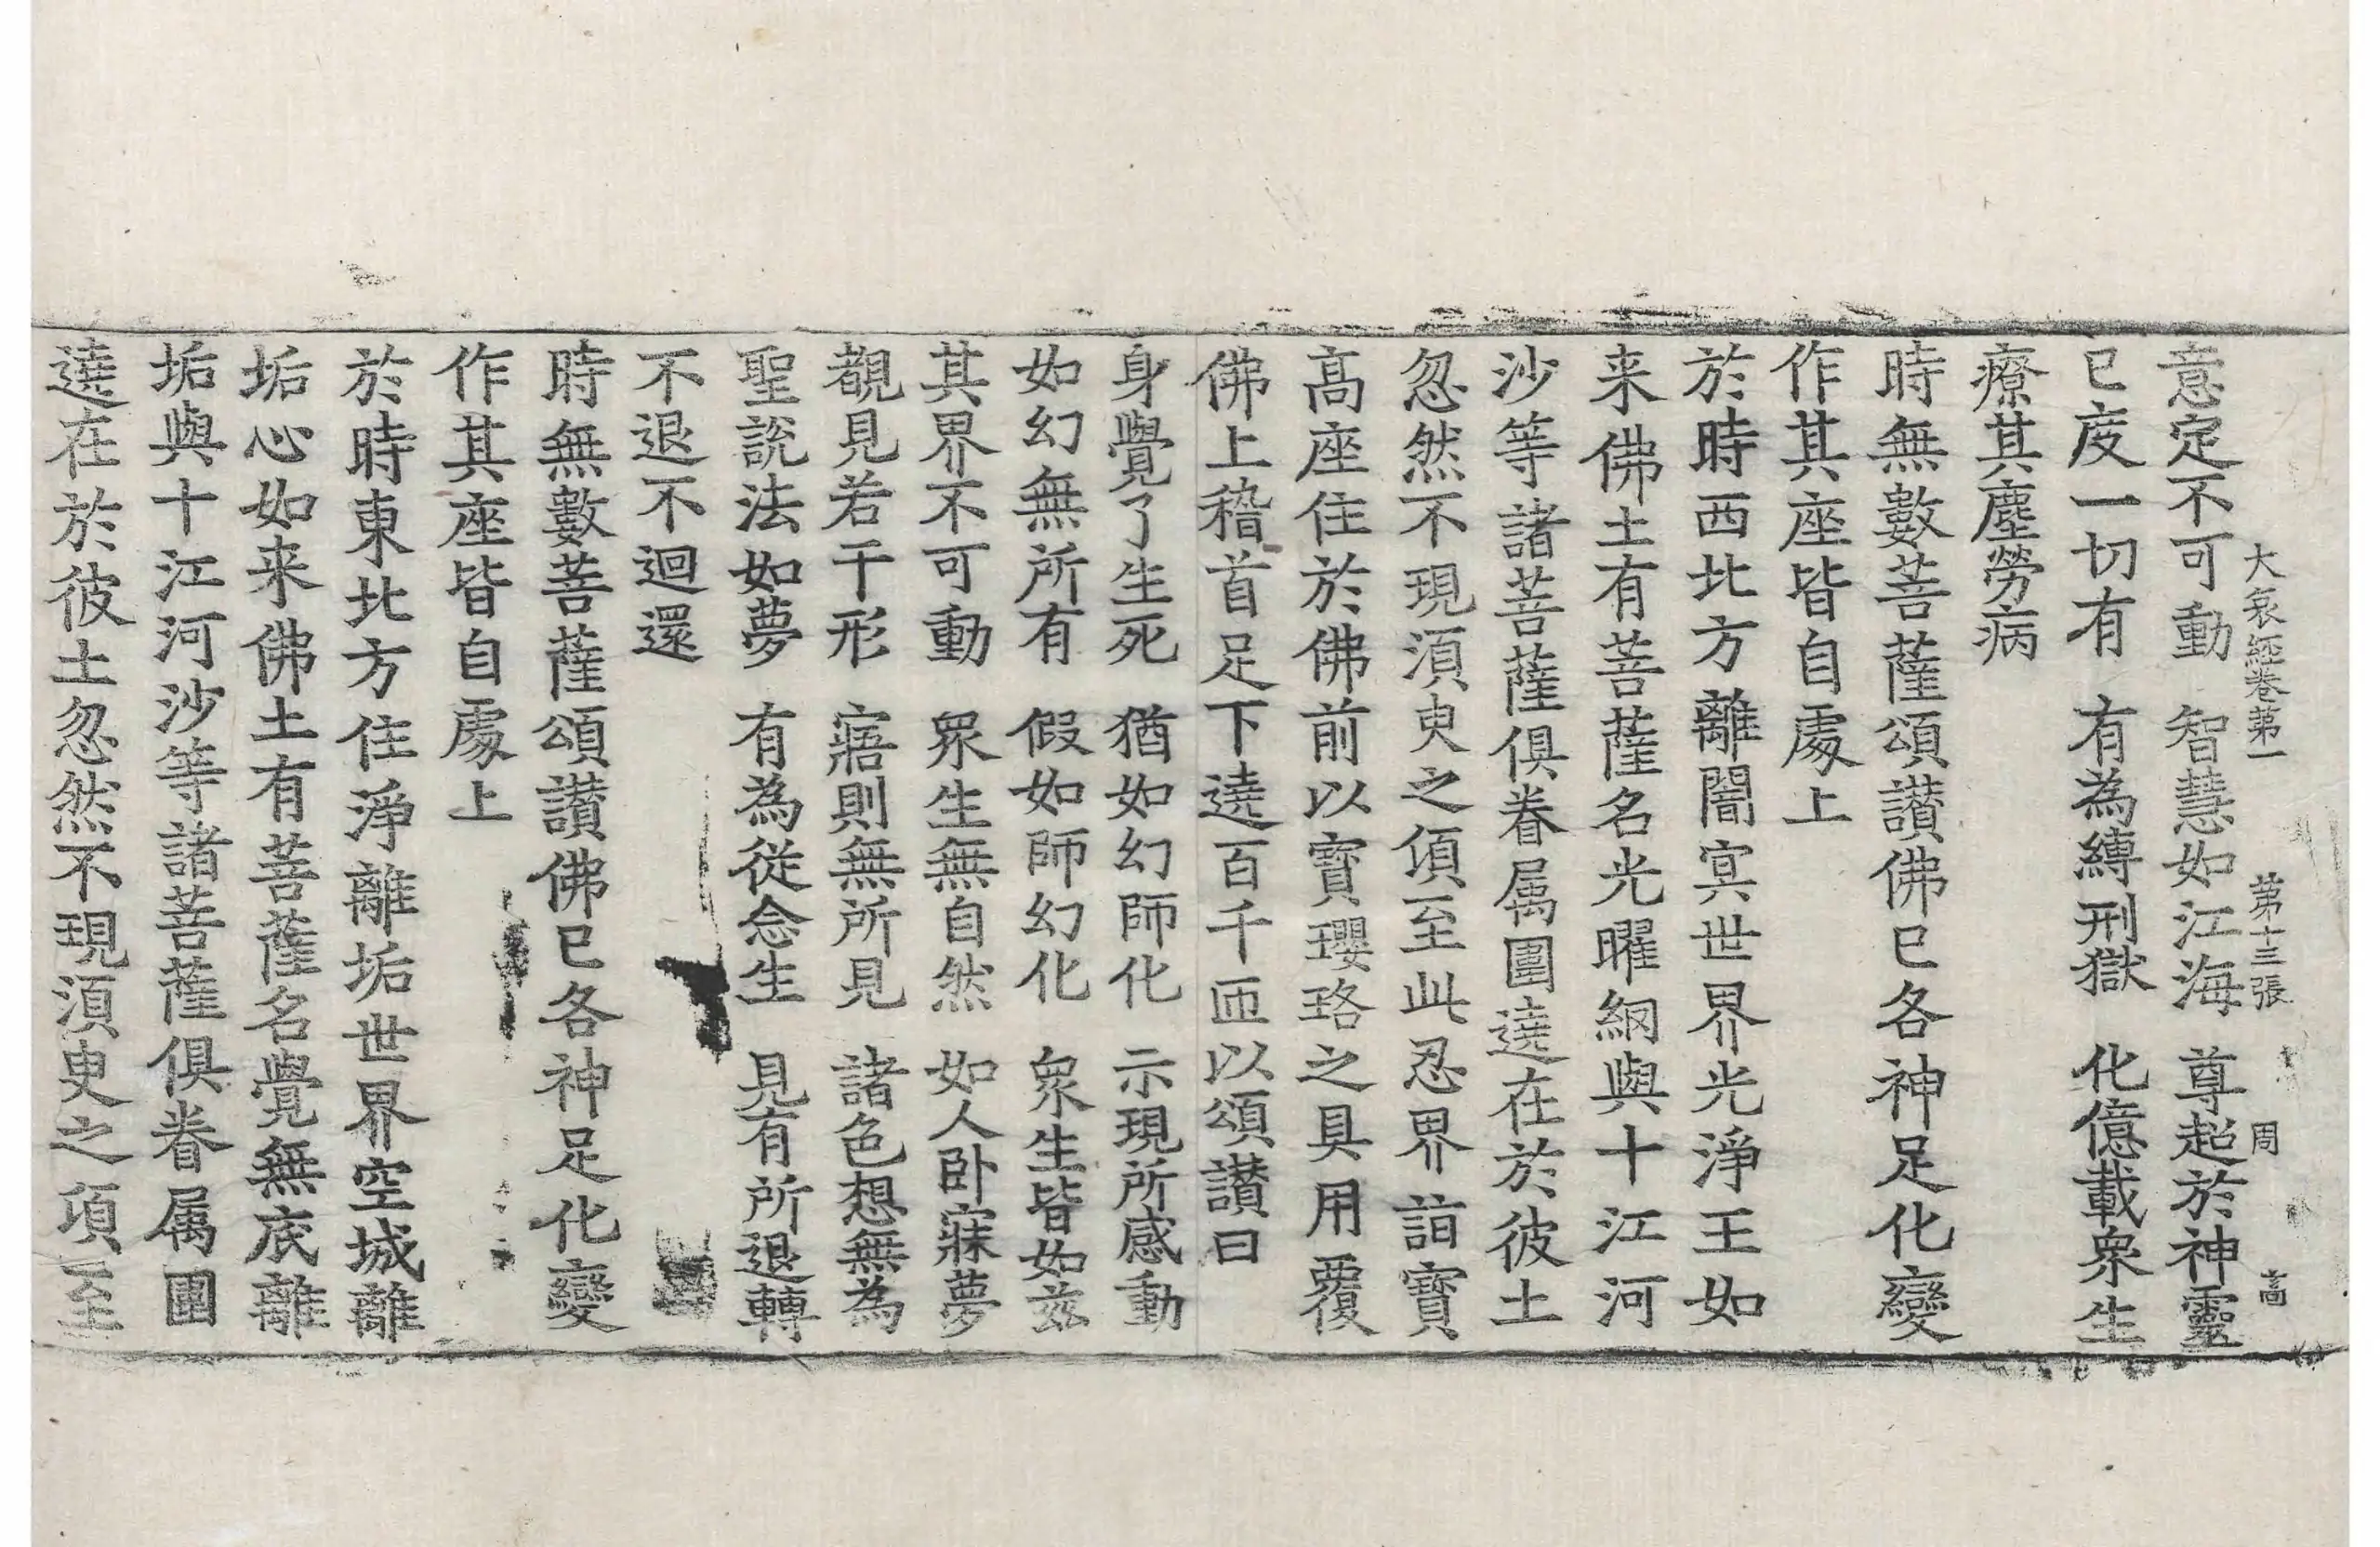 大哀經卷第一 第十三張 周 高
意定不可動 智慧如江海 尊超於神靈
已度一切有 有為縛刑獄 化億載衆生
療其塵勞病
時無數菩薩頌讃佛已各神足化變
作其座皆自處上
於時西北方離闇冥世界光淨王如
来佛土有菩薩名光曜網與十江河
沙等諸菩薩俱眷属圍遶在於彼土
忽然不現須臾之頃至此忍界詣寶
高座住於佛前以寶瓔珞之具用覆
佛上稽首足下遶百千匝以頌讃曰
身覺了生死 猶如幻師化 示現所感動
如幻無所有 假如師幻化 衆生皆如茲
其界不可動 衆生無自然 如人卧寐夢
覩見若干形 寤則無所見 諸色想無為
聖說法如夢 有為從念生 見有所退轉
不退不迴還
時無數菩薩頌讃佛已各神足化變
作其座皆自處上
於時東北方住淨離垢世界空城離
垢心如来佛土有菩薩名覺無底離
垢與十江河沙等諸菩薩俱眷属圍
遶在於彼土忽然不現須臾之頃至